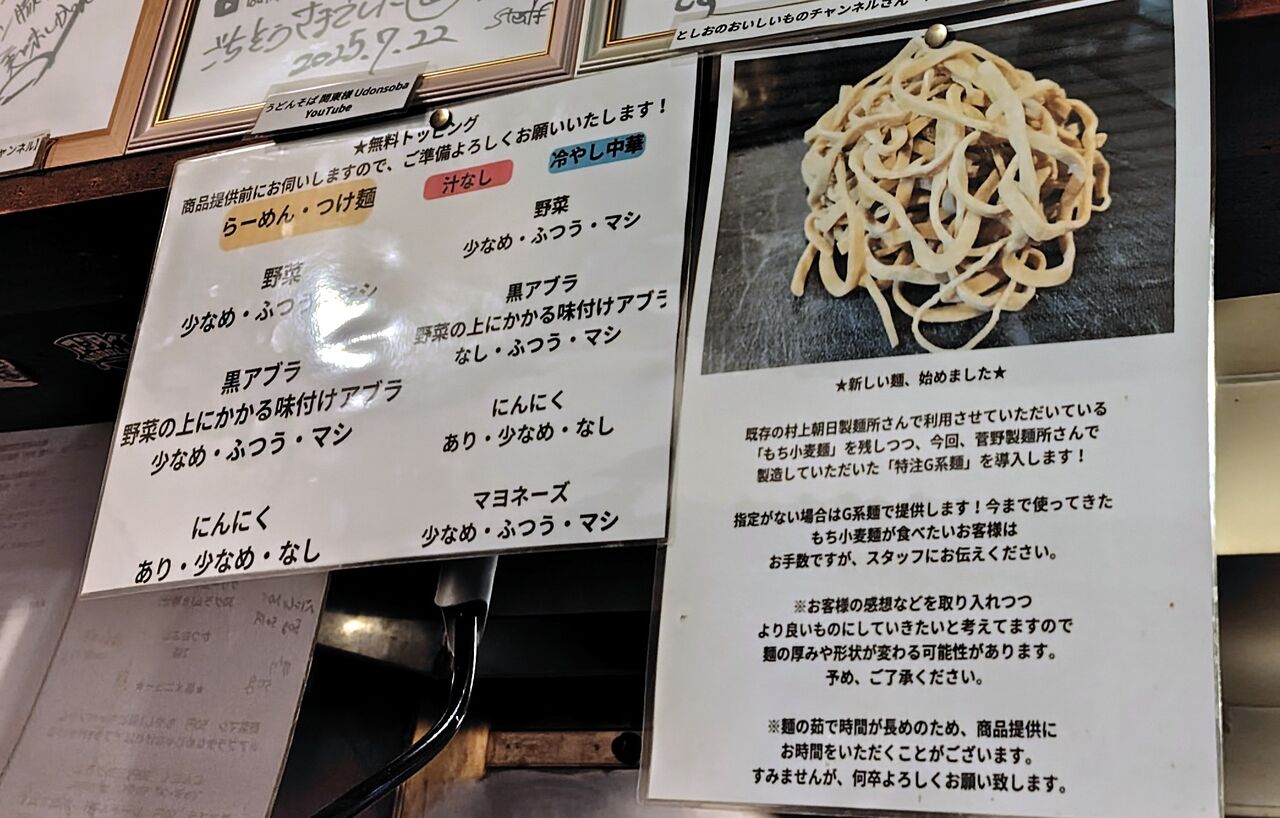 ごちそうさまでした
2025.7.22
staff
うどんそば 関東様 Udonsoba
YouTube
としおのおいしいものチャンネルさん
★無料トッピング
商品提供前にお伺いしますので、ご準備よろしくお願いいたします！
らーめん・つけ麺
野菜
少なめ・ふつう・マシ
黒アブラ
野菜の上にかかる味付けアブラ
少なめ・ふつう・マシ
にんにく
あり・少なめ・なし
汁なし
冷やし中華
野菜
少なめ・ふつう・マシ
黒アブラ
野菜の上にかかる味付けアブラ
なし・ふつう・マシ
にんにく
あり・少なめ・なし
マヨネーズ
少なめ・ふつう・マシ
★新しい麺、始めました★
既存の村上朝日製麺所さんで利用させていただいている
「もち小麦麺」を残しつつ、今回、菅野製麺所さんで
製造していただいた「特注G系麺」を導入します！
指定がない場合はG系麺で提供します！今まで使ってきた
もち小麦麺が食べたいお客様は
お手数ですが、スタッフにお伝えください。
※お客様の感想などを取り入れつつ
より良いものにしていきたいと考えてますので
麺の厚みや形状が変わる可能性があります。
予め、ご了承ください。
※麺の茹で時間が長めのため、商品提供に
お時間をいただくことがございます。
すみませんが、何卒よろしくお願い致します。